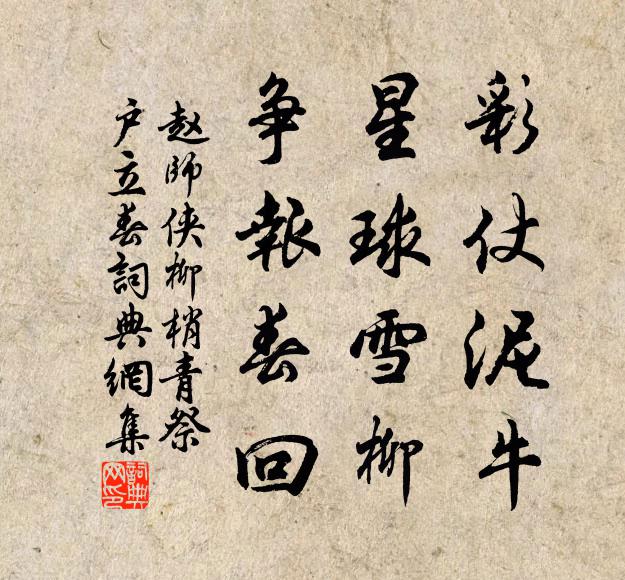 彩仗泥牛
星球雪柳
争報春回
赵師侠柳梢青祭
户立春詞典網集
詞典
网印